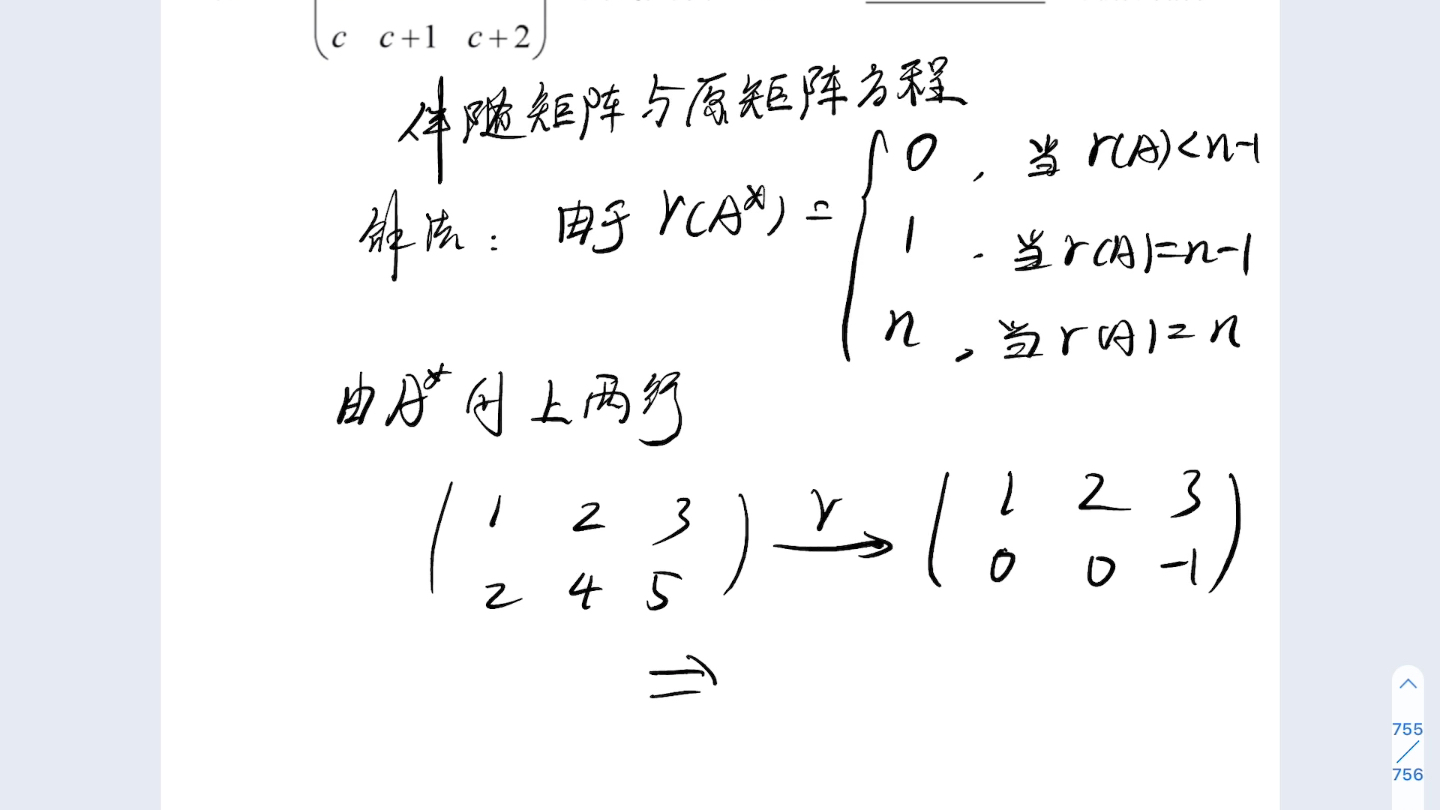 c c+1 c+2
伴随矩阵与原矩阵方程
解法: 由于 r(A*) = { 0, 当 r(A)<n-1
1, 当 r(A)=n-1
n, 当 r(A)=n
由A*的上两行
( 1 2 3 ) r→ ( 1 2 3 )
( 2 4 5 ) ( 0 0 -1 )
⇒
755
756